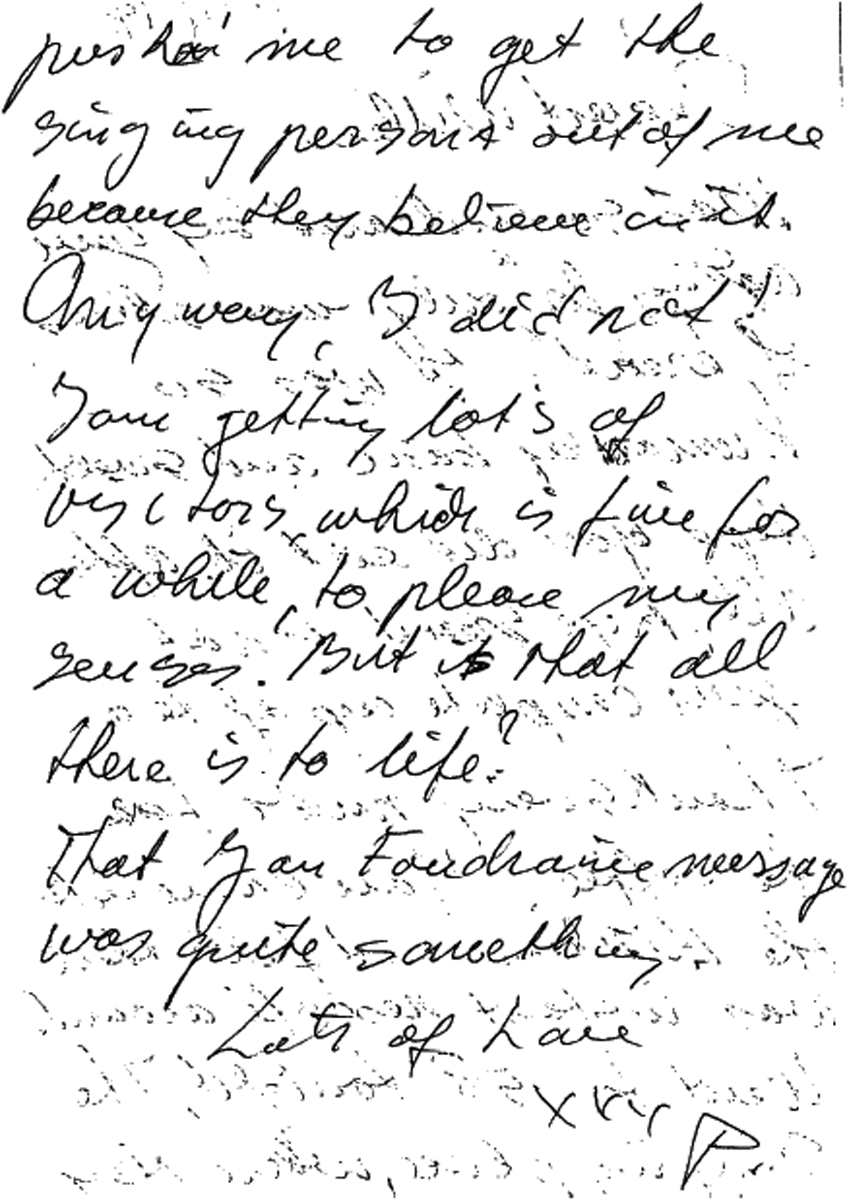 pushed me to get the
singing persons out of me
because they believe in it.
Anyway, I did not!
I am getting lot's of
visitors, which is fine for
a while, to please my
senses. But is that all
there is to life?
That Jan Foudraine message
was quite something.
Lots of Love
xxx P